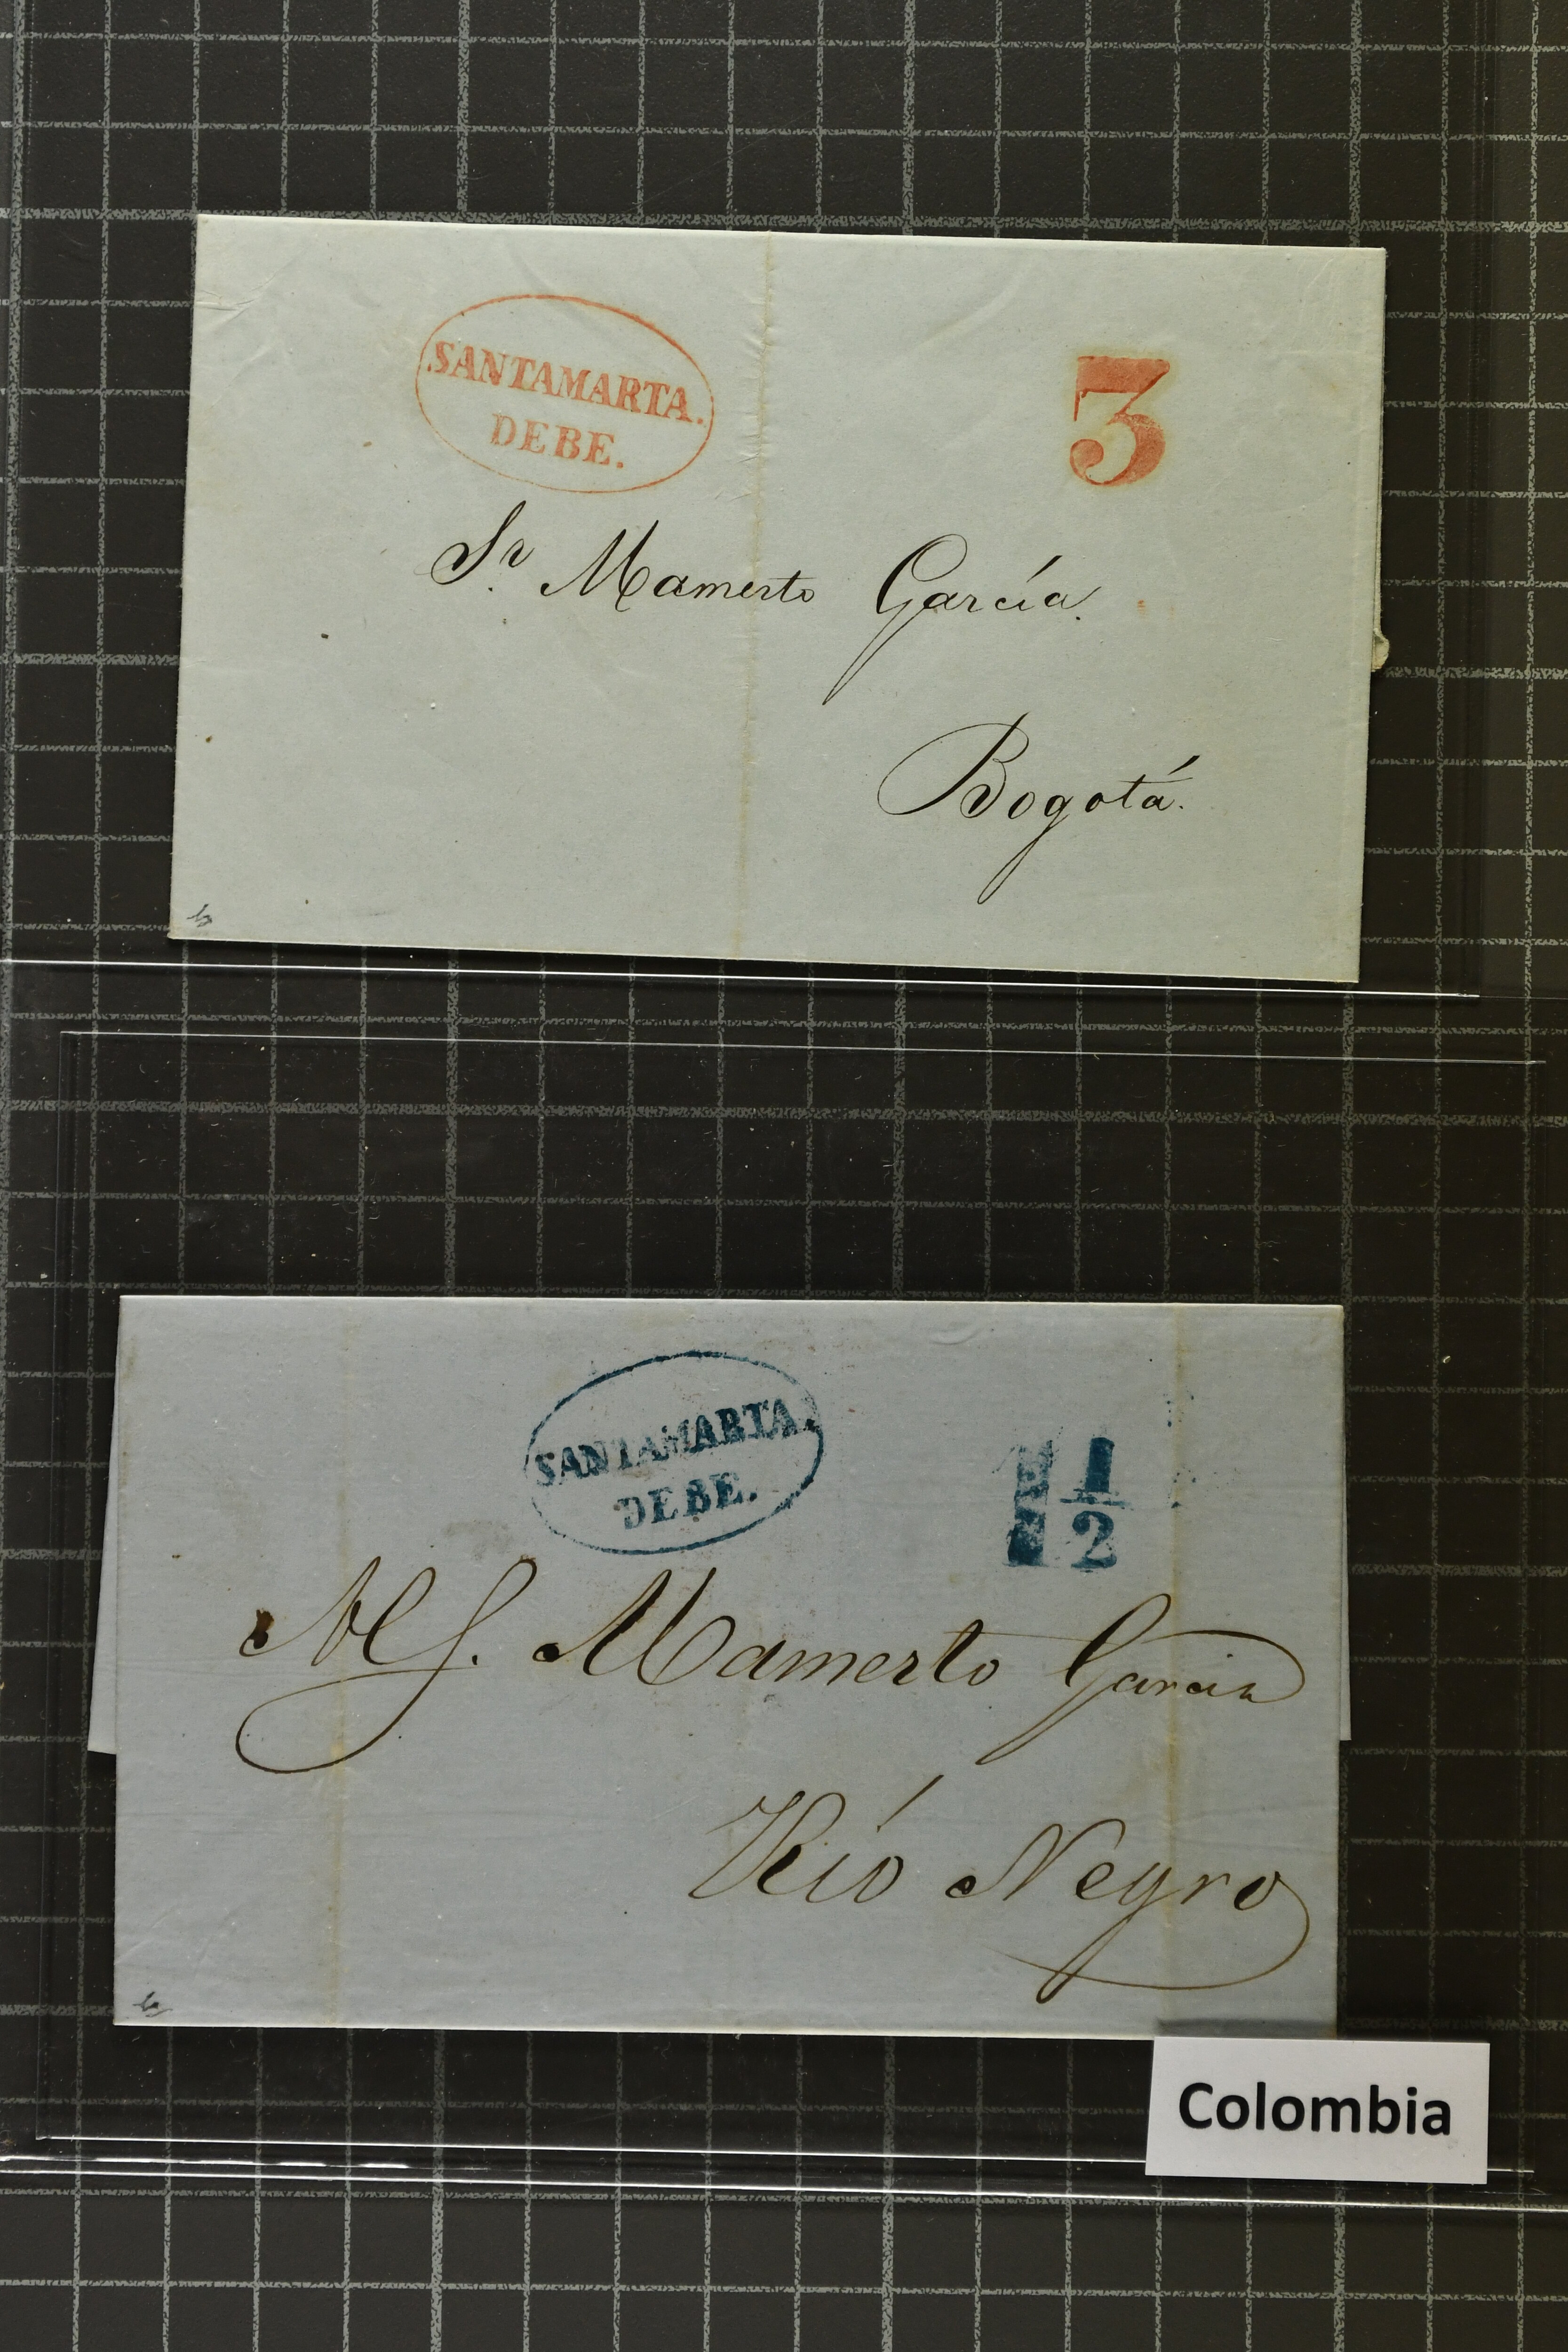 SANTAMARTA.
DEBE.
3
Sr. Mamerto García.
Bogotá.
SANTAMARTA.
DEBE.
1 1/2
Al S. Mamerto Garcia
Rió Negro
Colombia